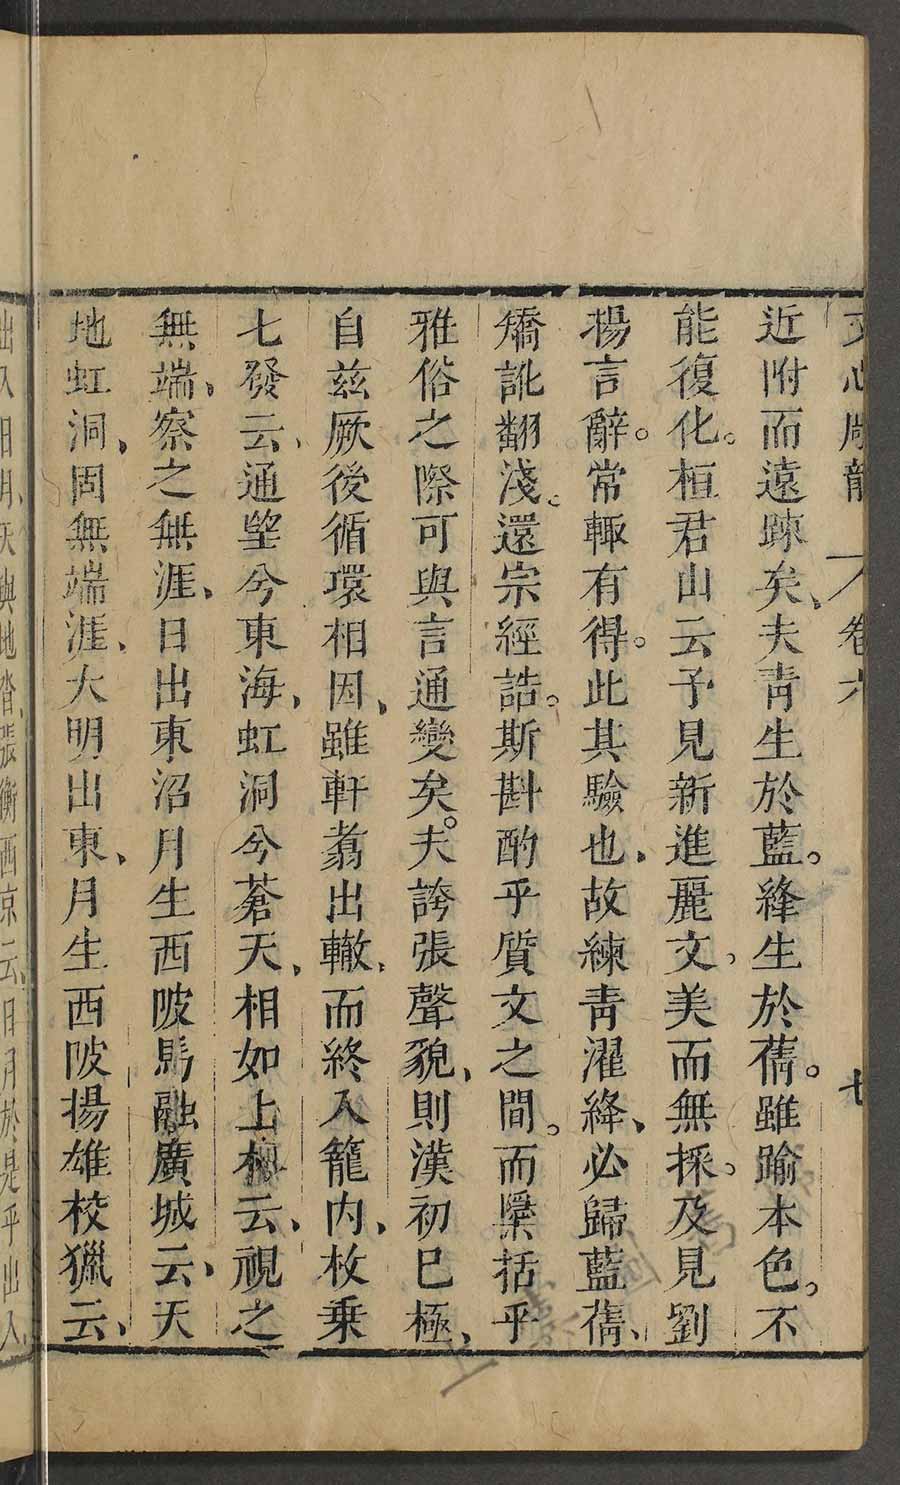 文心雕龍 卷六 七
近附而遠疎矣、夫青生於藍。絳生於蒨。雖踰本色。不
能復化。桓君山云予見新進麗文，美而無採。及見劉
揚言辭。常輙有得。此其驗也、故練青濯絳、必歸藍蒨、
矯訛翻淺、還宗經誥。斯斟酌乎質文之間。而檃括乎
雅俗之際可與言通變矣。夫誇張聲貌、則漢初巳極、
自茲厥後循環相因、雖軒翥出轍、而終入籠内、枚乗
七發云、通望兮東海、虹洞兮蒼天、相如上林云、視之
無端、察之無涯、日出東沼月生西陂馬融廣城云、天
地虹洞、固無端涯、大明出東、月生西陂揚雄校獵云、
出入日月、天與地沓、張衡西京云、日月於是乎出入